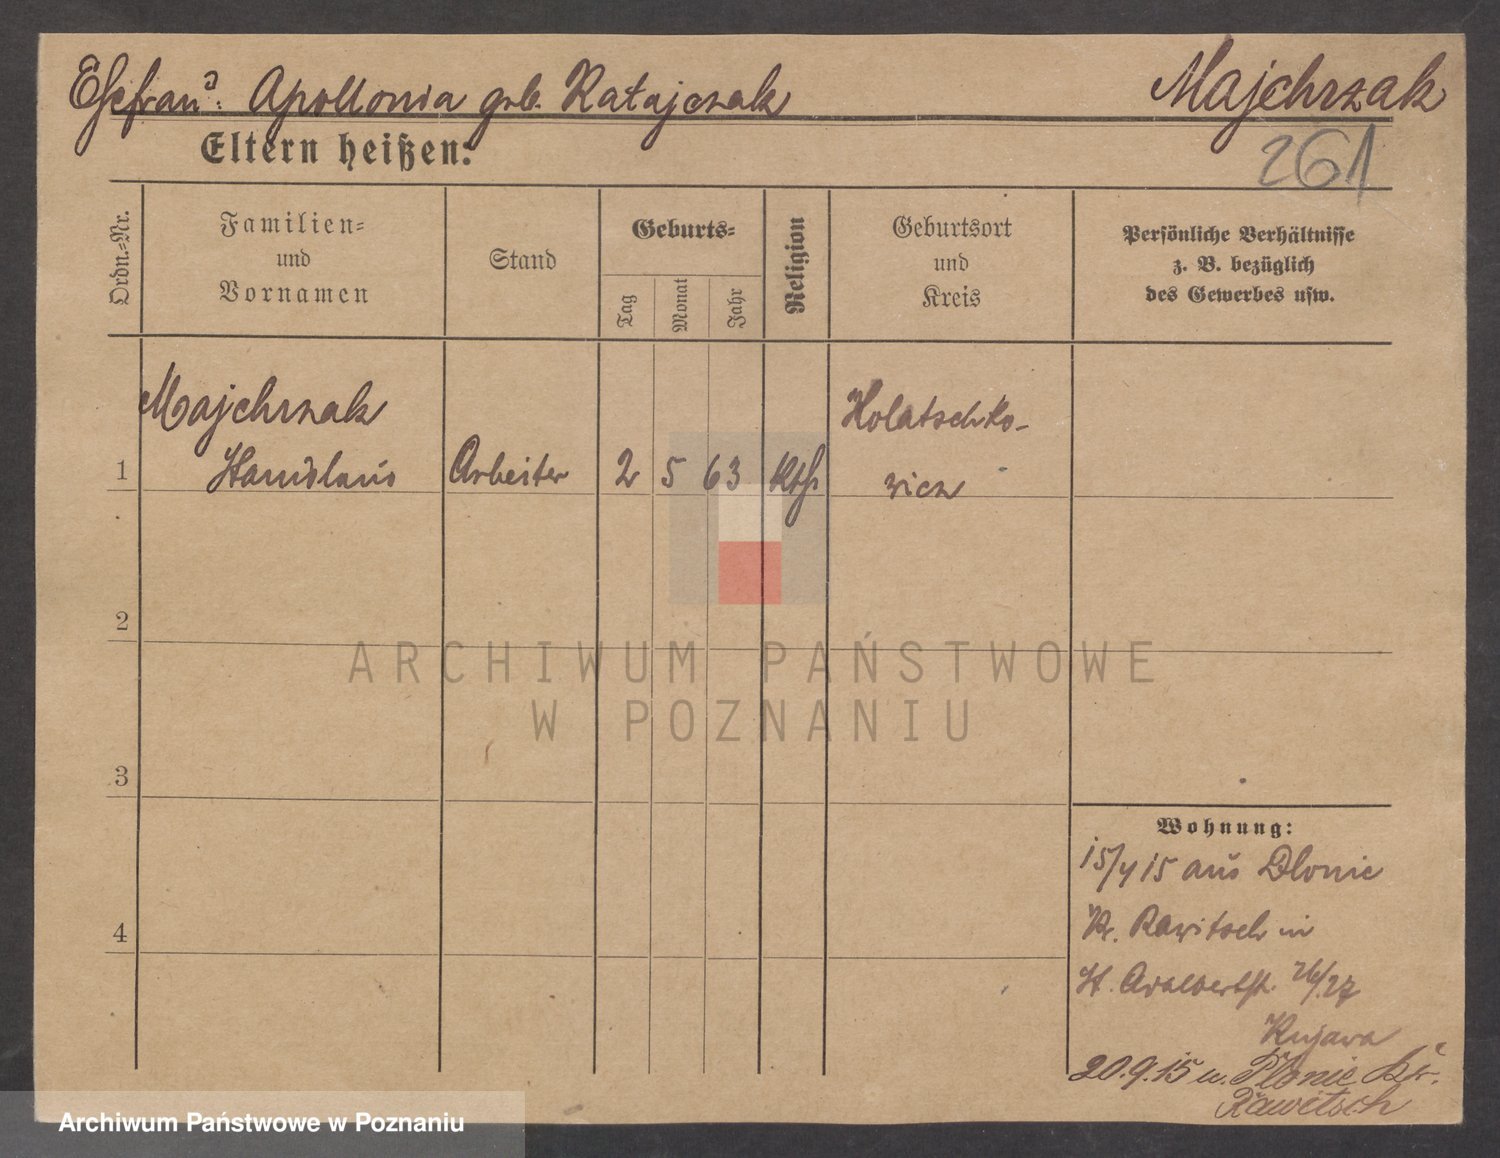 Ehefrau: Apollonia geb. Ratajczak
Majchrzak
261
Eltern heißen:
Ordn.-Nr.
Familien-
und
Vornamen
Stand
Geburts-
Tag
Monat
Jahr
Religion
Geburtsort
und
Kreis
Persönliche Verhältnisse
z. B. bezüglich
des Gewerbes usw.
1
Majchrzak
Stanislaus
Arbeiter
2 5 63
Kth
Kolatschko-
wicz
2
3
4
Wohnung:
15/4 15 aus Dlonie
Kr. Rawitsch in
St. Adalbertstr. 26/27
Kujawa
20.9.15 n. Dlonie Kr.
Rawitsch
ARCHIWUM PAŃSTWOWE
W POZNANIU
Archiwum Państwowe w Poznaniu